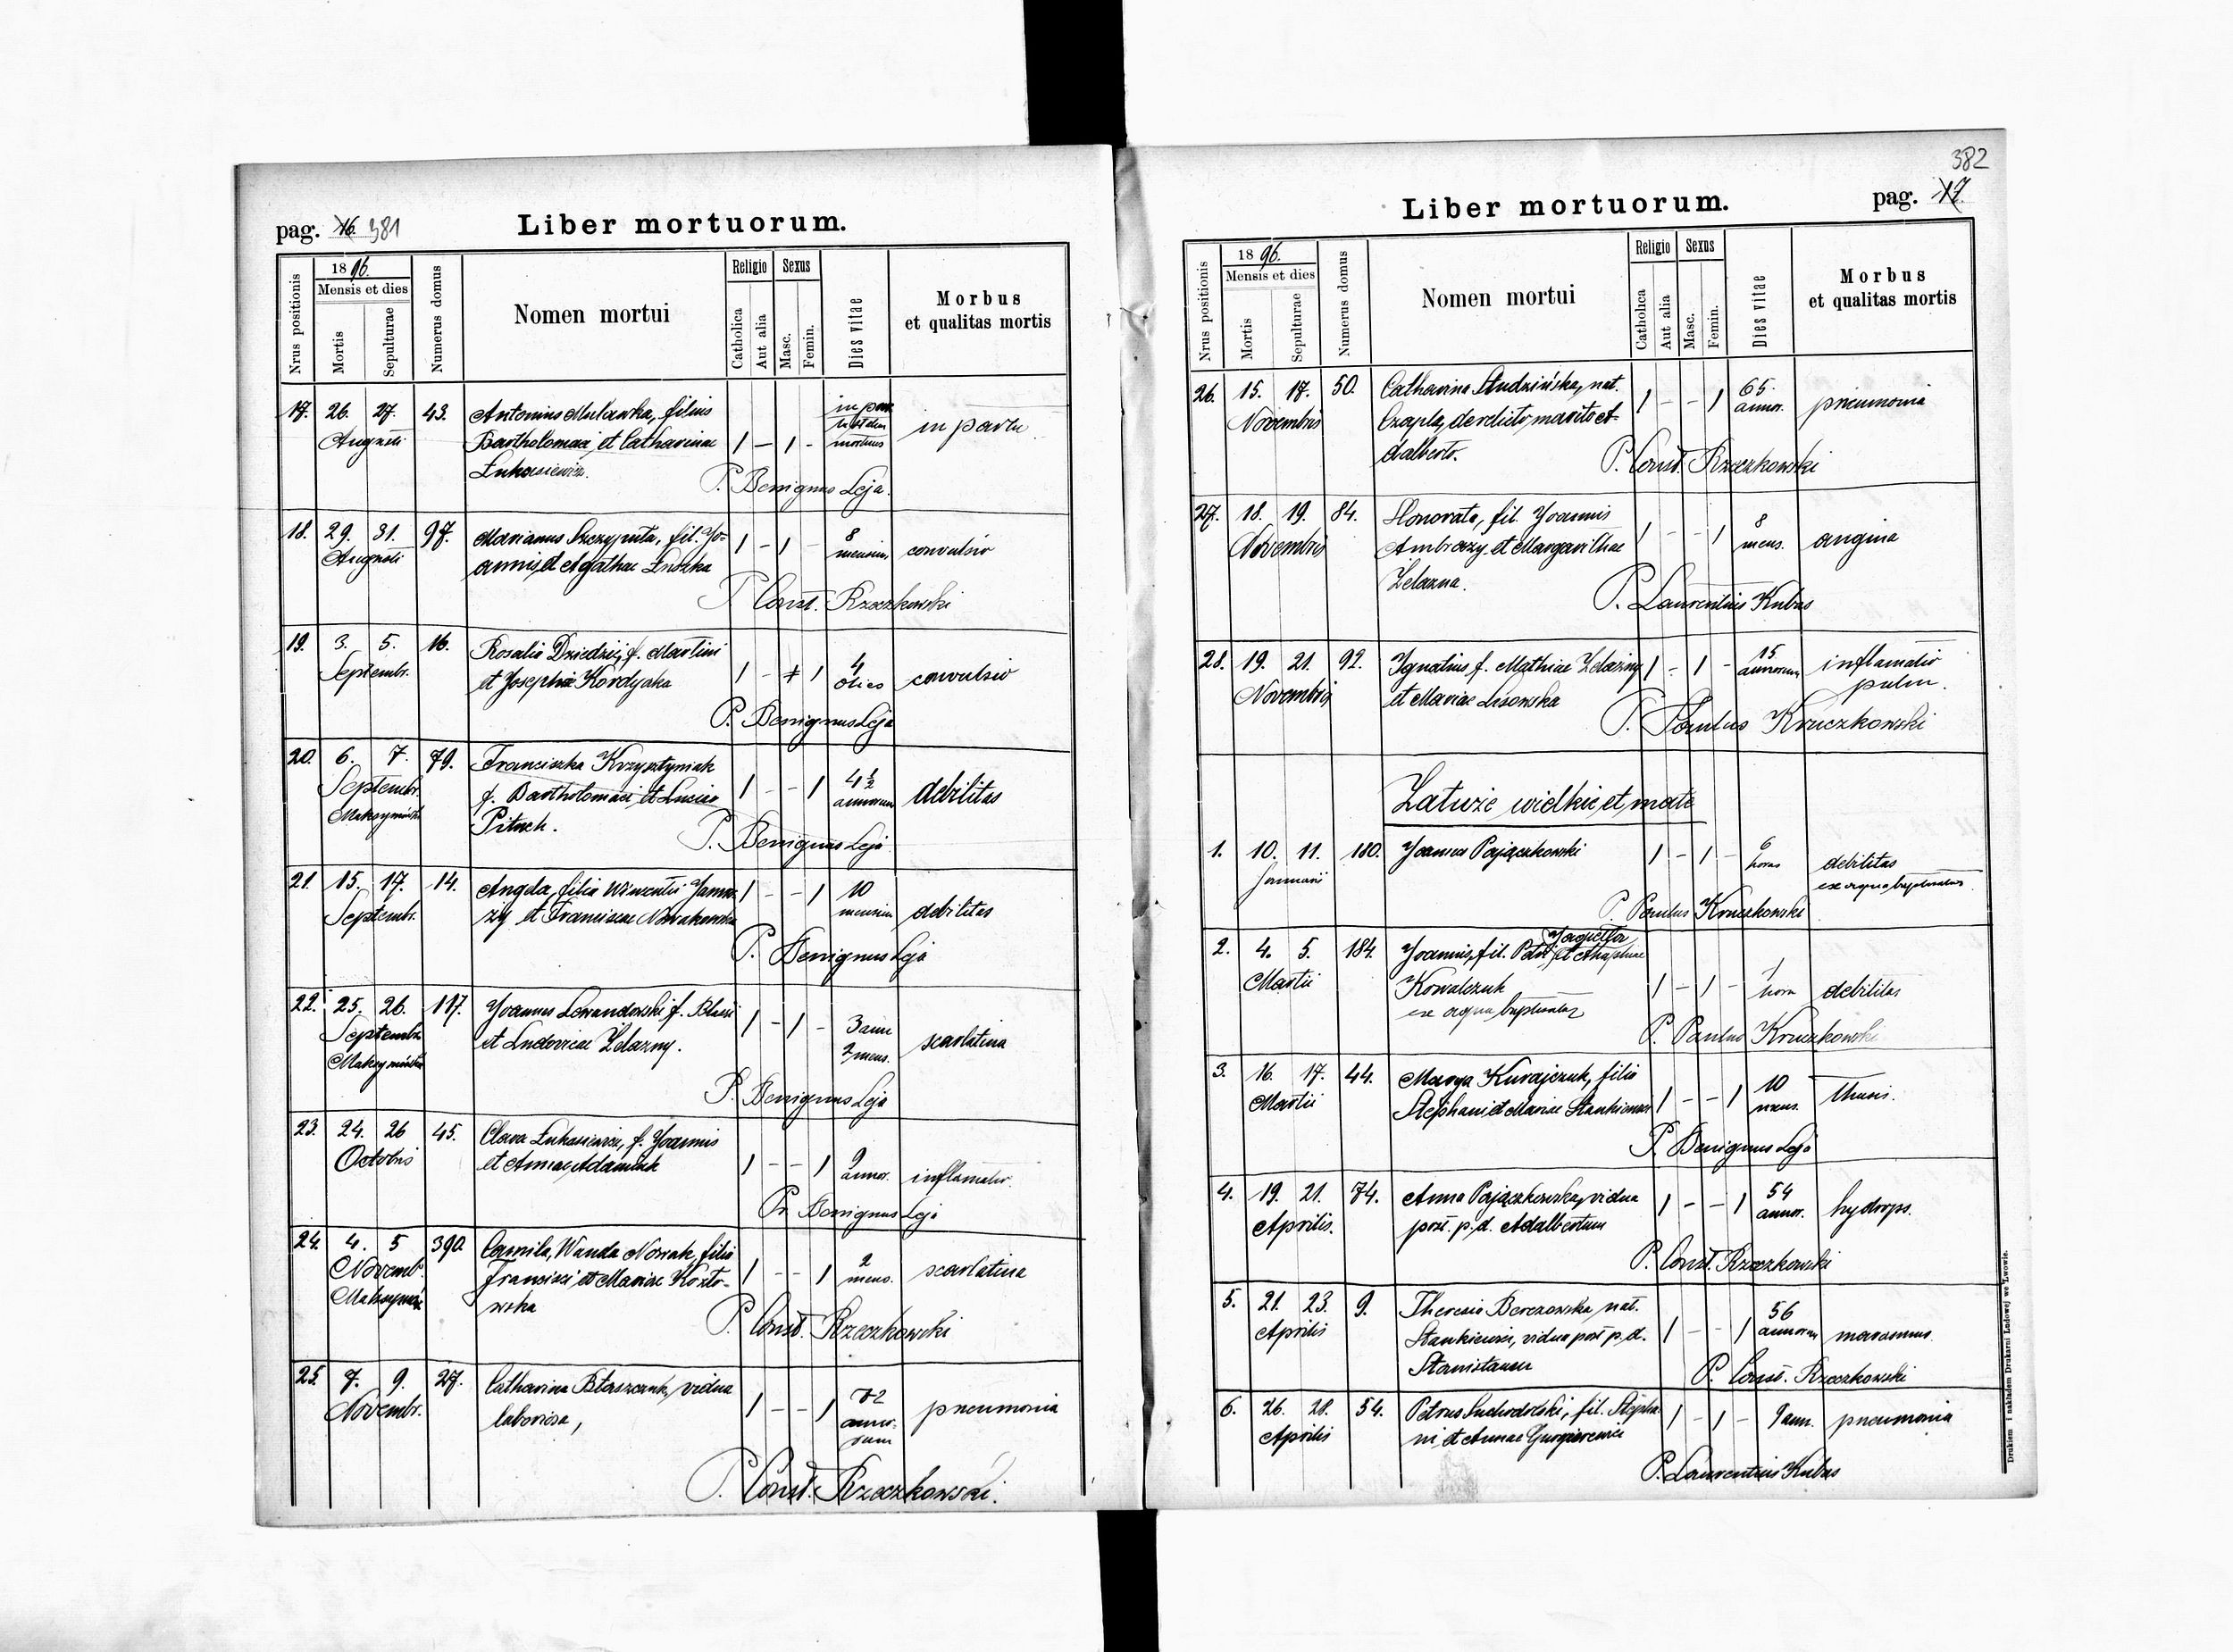 pag. 16. 381
Liber mortuorum.
Nrus positionis
1896.
Mensis et dies
Mortis
Sepulturae
Numerus domus
Nomen mortui
Religio
Catholica
Aut alia
Sexus
Masc.
Femin.
Dies vitae
Morbus
et qualitas mortis
17. 26. 27. 43. Antonius, filius
Augusti Bartholomaei et Catharinae 1 – 1 - mortuus in partu
Łukasiewicz.
P. Benignus Leja.
18. 29. 31. 97. Marianus Szczyruta, fil. Jo= 1 - 1 - 8
Augusti annis et Agathae Łuszka mensium convulsio
P. Const. Rzeczkowski
19. 3. 5. 16. Rosalia Dziedzic, f. Martini
Septembr. et Josephae Kordyaka 1 - + 1 4 dies convulsio
P. Benignus Leja
20. 6. 7. 79. Franciszka Krzysztyniak
Septembr. f. Bartholomaei et Luciae 1 - - 1 4 1/2 annorum debilitas
Pituch.
P. Benignus Leja
21. 15. 17. 14. Angela, filia Wincentii 1 - - 1 10
Septembr. et Franciscae Nowakowska mensium debilitas
P. Benignus Leja
22. 25. 26. 117. Joannes Lewandowski f. Blasii
Septembr. et Ludovicae Żelazny. 1 - 1 - 3 ann 2 mens. scarlatina
P. Benignus Leja
23. 24. 26 45. Clara Łukasiewicz, f. Joannis
Octobris et Annae Adamiak 1 - - 1 9 annor. inflamatio.
P. Benignus Leja
24. 4. 5 390. Camila, Wanda Nowak, filia
Novemb. Francisci et Mariae Kozło- 1 - - 1 2 mens. scarlatina
wska
P. Const. Rzeczkowski
25. 7. 9. 27. Catharina Błaszczuk, vidua
Novembr. laboriosa, 1 - - 1 72 annorum pneumonia
P. Const. Rzeczkowski.
382
pag. 17.
Liber mortuorum.
Nrus positionis
1896.
Mensis et dies
Mortis
Sepulturae
Numerus domus
Nomen mortui
Religio
Catholica
Aut alia
Sexus
Masc.
Femin.
Dies vitae
Morbus
et qualitas mortis
26. 15. 17. 50. Catharina Studzińska, nat.
Novembris Czapla, derelicto marito A- 1 - - 1 65. annor. pneumonia
dalberto.
P. Const. Rzeczkowski
27. 18. 19. 84. Honorata, fil. Joannis
Novembris Ambrozy et Margarithae 1 - - 1 8 mens. angina
Żelazna.
P. Laurentius Kubas
28. 19. 21. 92. Ignatius f. Mathiae Żelazny 1 - 1 - 15. annorum inflamatio
Novembris et Mariae Lisowska pulm.
P. Paulus Kruczkowski
Łatwie wielkie et małe
1. 10. 11. 180. Joannes Pajączkowski 1 - 1 - 6 horas debilitas
Januarii ex aqua baptisatus
P. Paulus Kruczkowski
Jagiełła
2. 4. 5. 184. Joannis, fil. Petri et
Martii Kowalczuk 1 - 1 - 1 hora debilitas
ex aqua baptisatus
P. Paulus Kruczkowski
3. 16. 17. 44. Marya Kurajczuk, filia
Martii Stephani et Mariae Stankiewicz 1 - - 1 10 mens. thusis.
P. Benignus Leja
4. 19. 21. 74. Anna Pajączkowska, vidua
Aprilis. post. p. d. Adalbertum 1 - - 1 54 annor. hydrops.
P. Const. Rzeczkowski
5. 21. 23. 9. Theresia Berezowska, nat.
Aprilis Stankiewicz, vidua post p. d. 1 - - 1 56 annorum marasmus.
Stanislaum
P. Const. Rzeczkowski
6. 26. 28. 54. Petrus Suchodolski, fil. Stepha-
Aprilis ni et Annae 1 - 1 - 9 ann. pneumonia
P. Laurentius Kubas
Drukiem i nakładem Drukarni Ludowej we Lwowie.